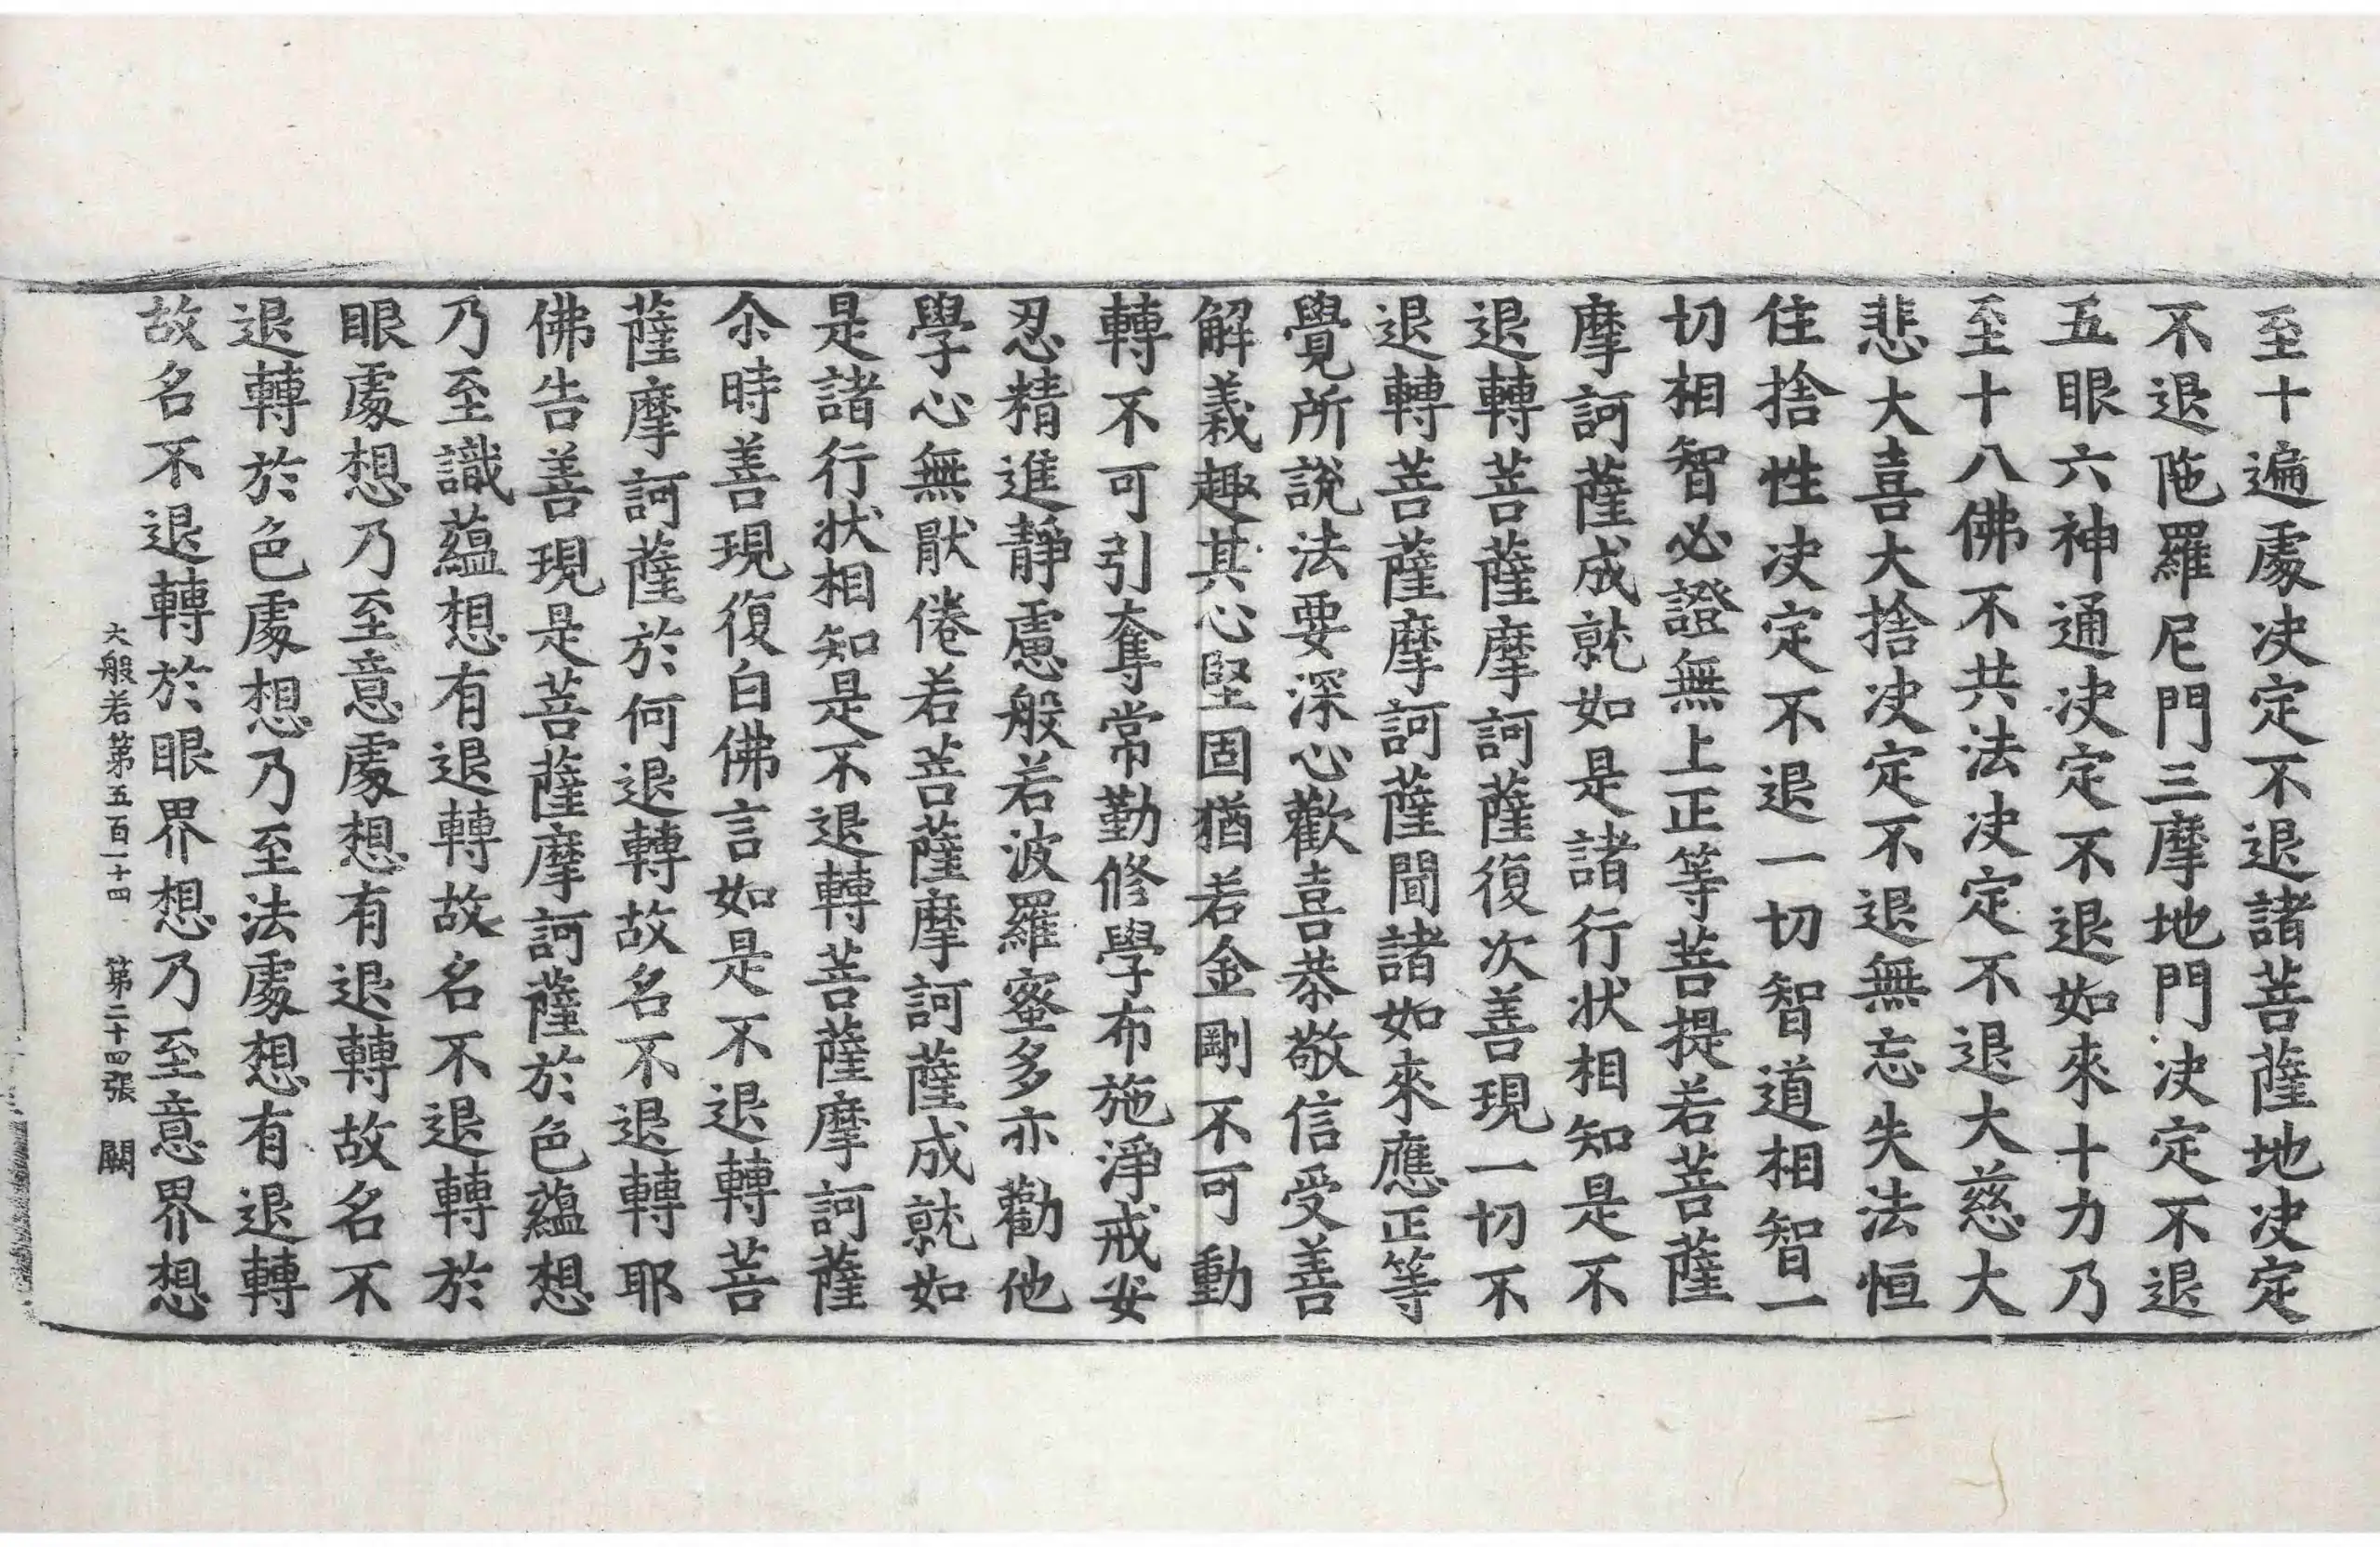 至十遍處决定不退諸菩薩地决定
不退陁羅尼門三摩地門决定不退
五眼六神通决定不退如來十力乃
至十八佛不共法决定不退大慈大
悲大喜大捨决定不退無忘失法恒
住捨性决定不退一切智道相智一
切相智必證無上正等菩提若菩薩
摩訶薩成就如是諸行狀相知是不
退轉菩薩摩訶薩復次善現一切不
退轉菩薩摩訶薩聞諸如來應正等
覺所說法要深心歡喜恭敬信受善
解義趣其心堅固猶若金剛不可動
轉不可引奪常勤修學布施淨戒安
忍精進靜慮般若波羅蜜多亦勸他
學心無猒倦若菩薩摩訶薩成就如
是諸行狀相知是不退轉菩薩摩訶薩
尒時善現復白佛言如是不退轉菩
薩摩訶薩於何退轉故名不退轉耶
佛告善現是菩薩摩訶薩於色蘊想
乃至識蘊想有退轉故名不退轉於
眼處想乃至意處想有退轉故名不
退轉於色處想乃至法處想有退轉
故名不退轉於眼界想乃至意界想
大般若第五百一十四 第二十四張 闕